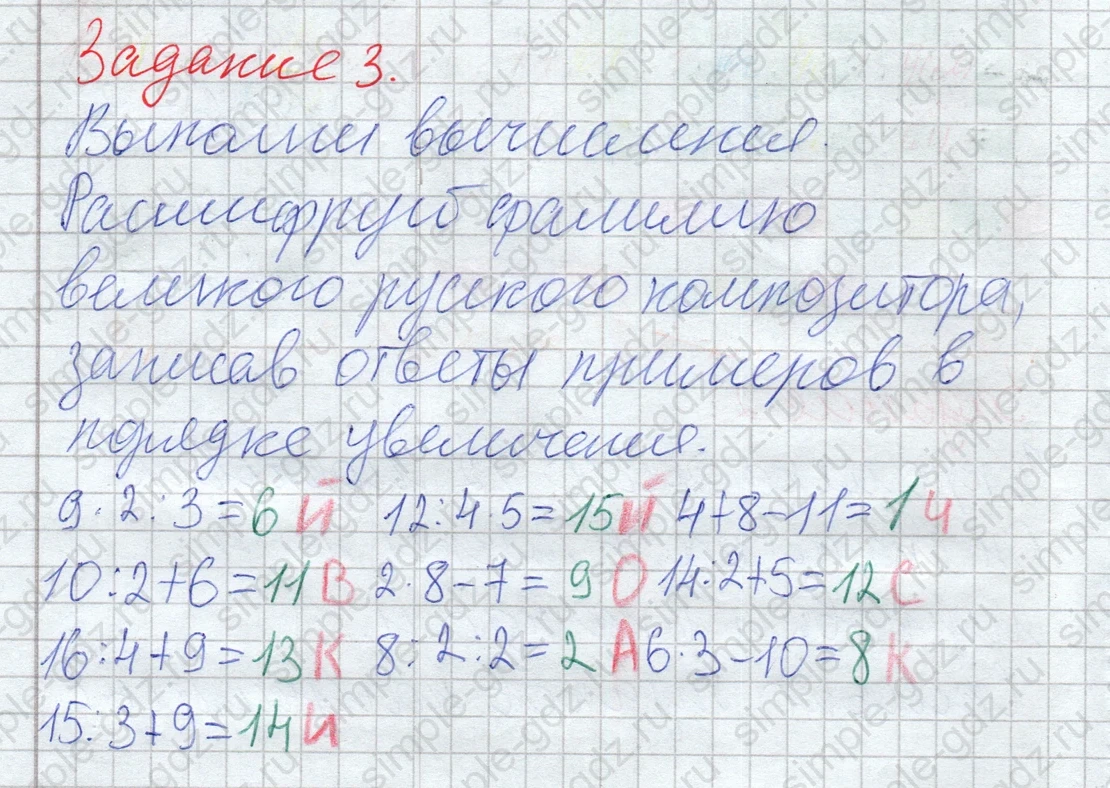 Задание 3.
Выполни вычисления.
Расшифруй фамилию
великого русского композитора,
записав ответы примеров в
порядке увеличения.
9·2:3=6 Й 12:4·5=15Й 4+8-11=1Ч
10:2+6=11В 2·8-7=9О 14:2+5=12С
16:4+9=13К 8:2:2=2А 6·3-10=8К
15:3+9=14И
simple-gdz.ru